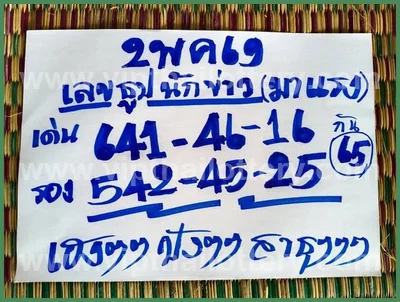 2พค69
เลขธูปนักข่าว(มาแรง)
เด่น 641-46-16 กัน
รอง 542-45-25 65
เฮงๆๆ ปังๆๆ สาธุๆๆๆ